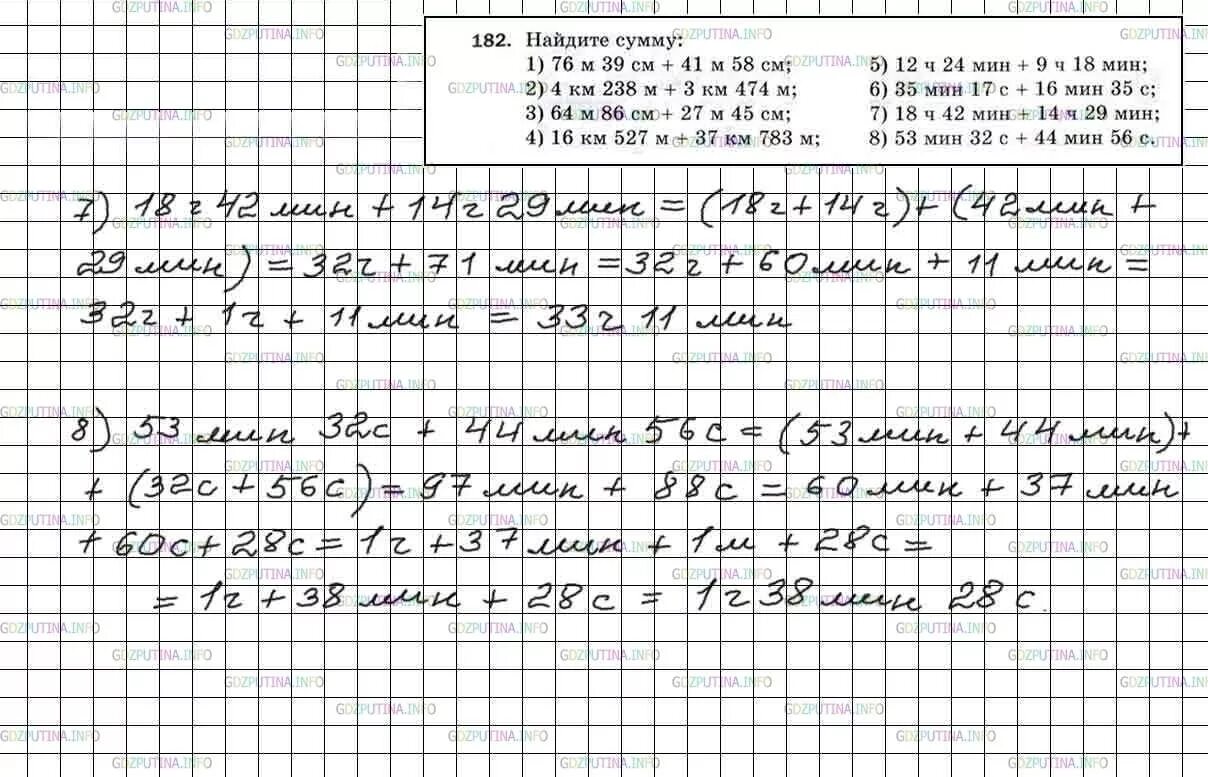 182. Найдите сумму:
1) 76 м 39 см + 41 м 58 см;
2) 4 км 238 м + 3 км 474 м;
3) 64 м 86 см + 27 м 45 см;
4) 16 км 527 м + 37 км 783 м;
5) 12 ч 24 мин + 9 ч 18 мин;
6) 35 мин 17 с + 16 мин 35 с;
7) 18 ч 42 мин + 14 ч 29 мин;
8) 53 мин 32 с + 44 мин 56 с.
7) 18 ч 42 мин + 14 ч 29 мин = (18 ч + 14 ч) + (42 мин +
29 мин) = 32 ч + 71 мин = 32 ч + 60 мин + 11 мин =
32 ч + 1 ч + 11 мин = 33 ч 11 мин
8) 53 мин 32 с + 44 мин 56 с = (53 мин + 44 мин) +
+ (32 с + 56 с) = 97 мин + 88 с = 60 мин + 37 мин
+ 60 с + 28 с = 1 ч + 37 мин + 1 м + 28 с =
= 1 ч + 38 мин + 28 с = 1 ч 38 мин 28 с.
GDZPUTINA.INFO